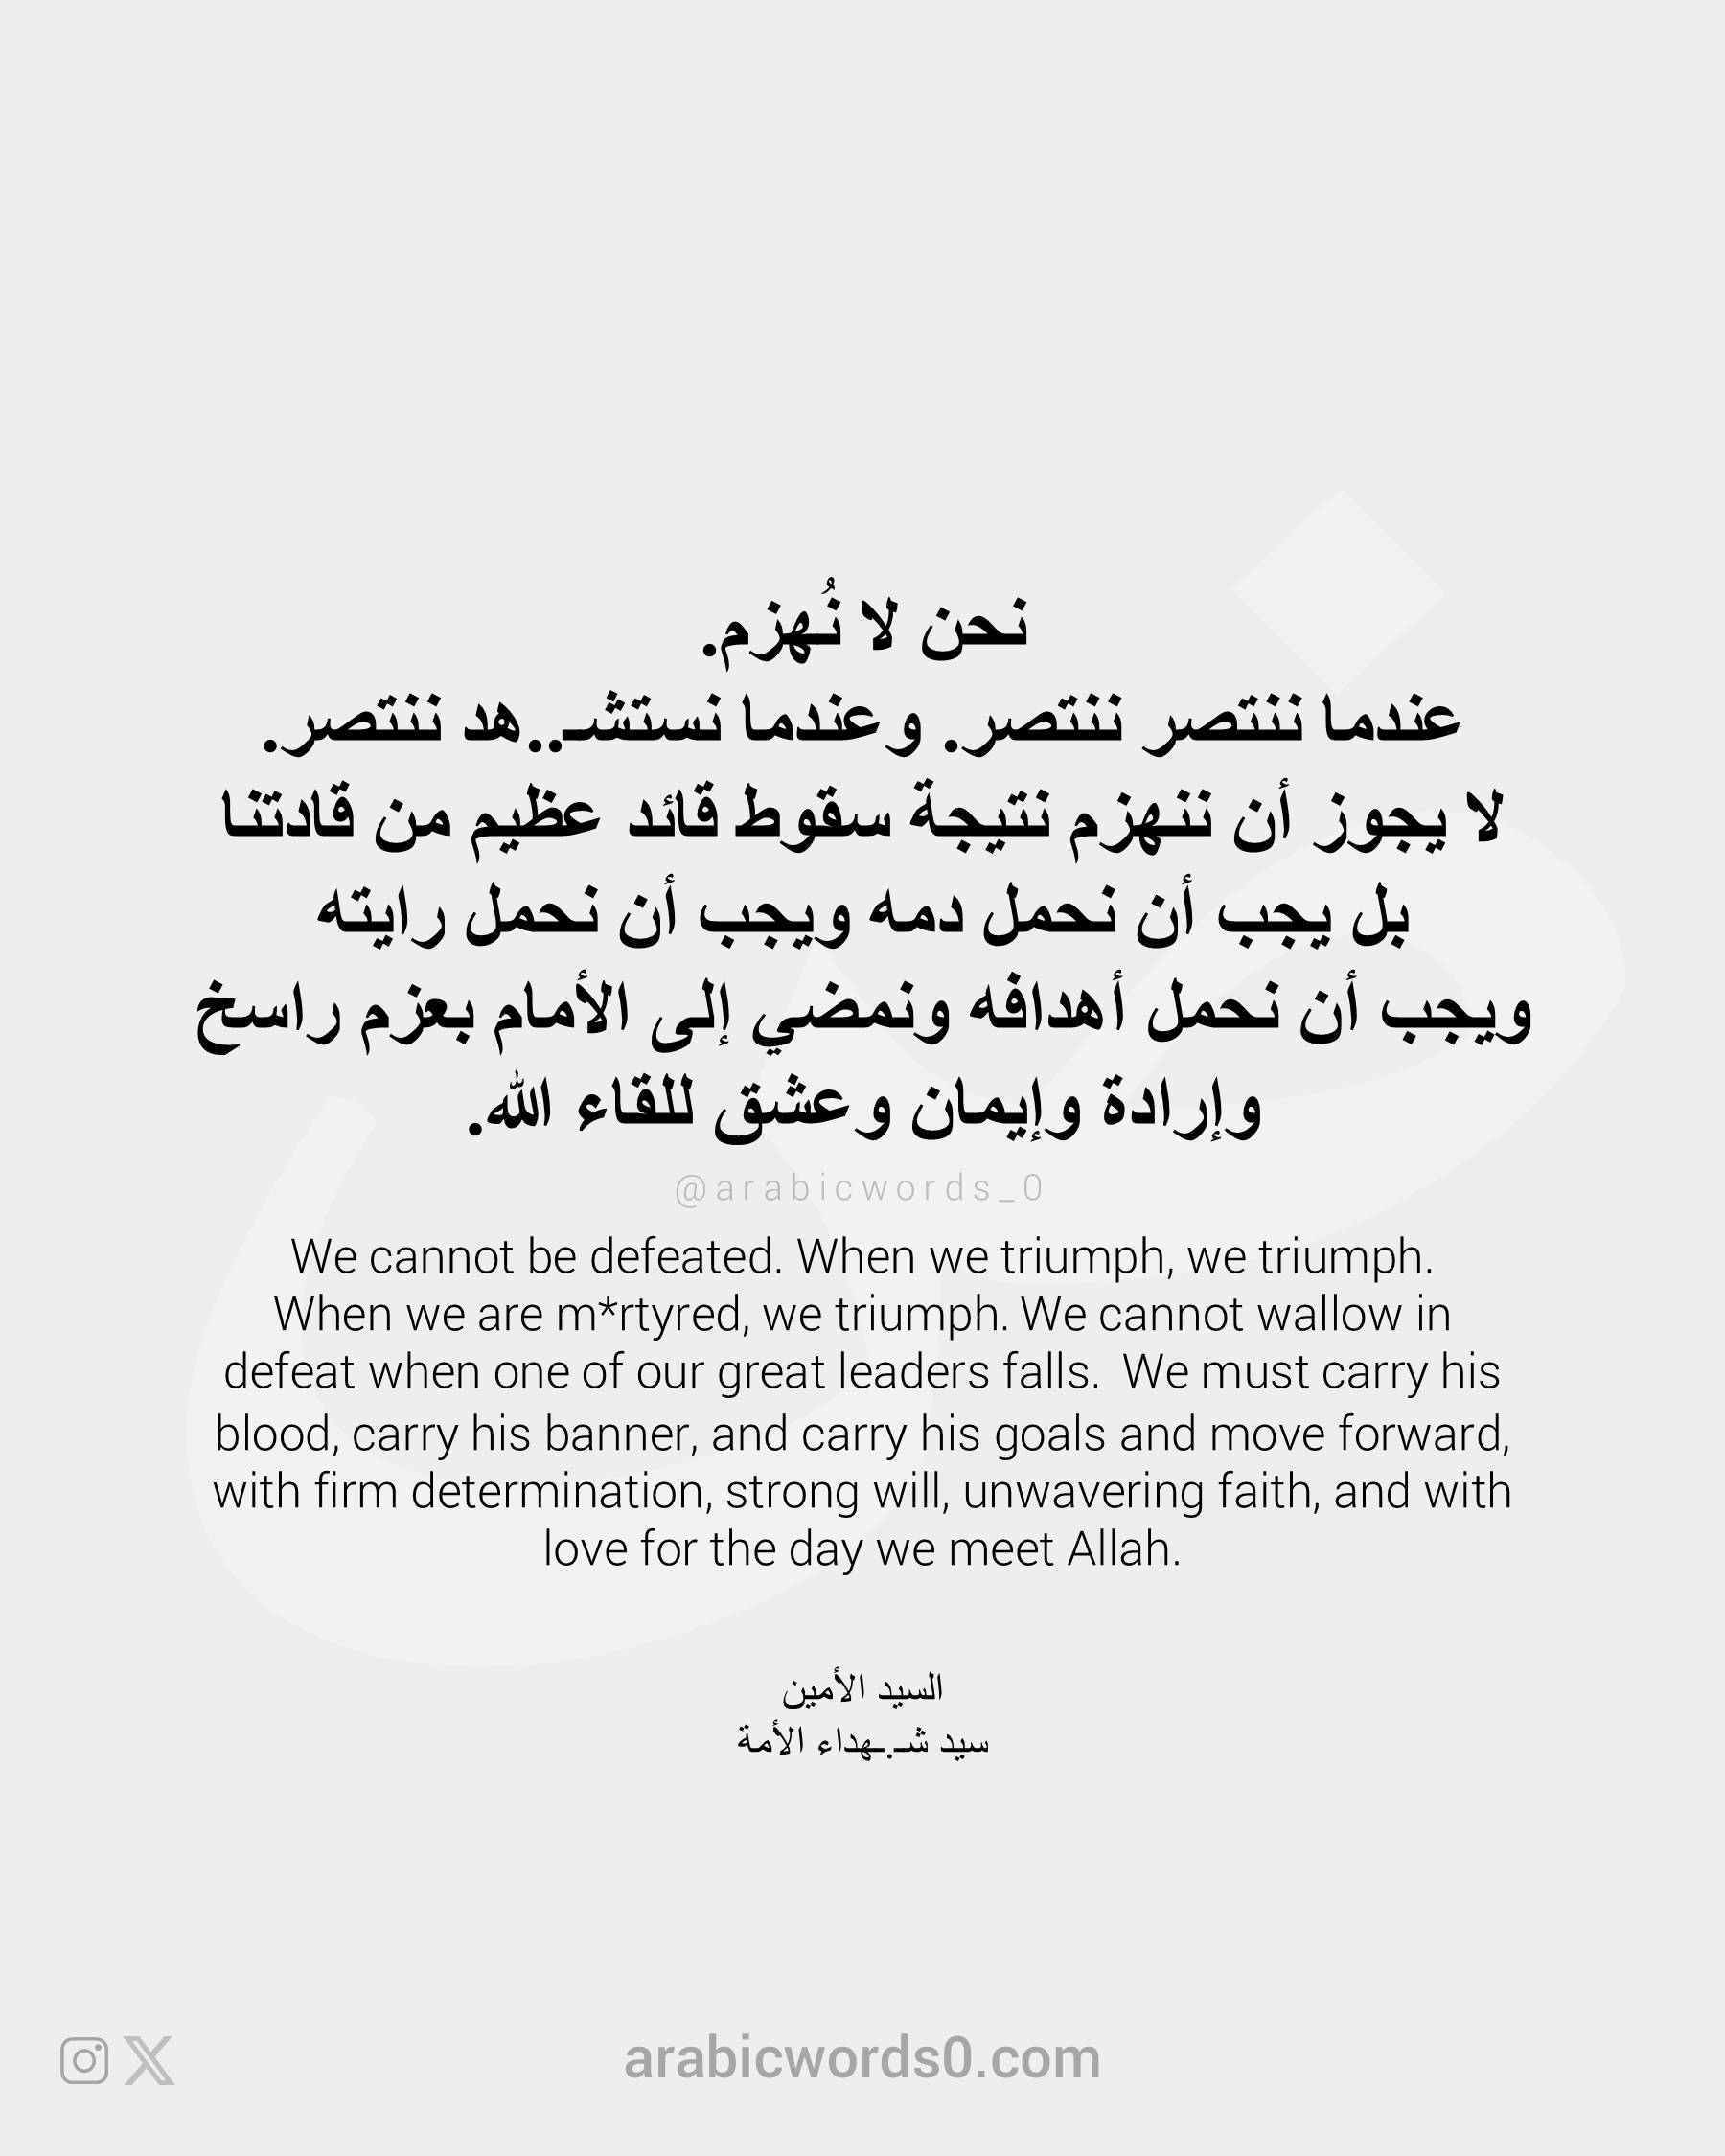 نحن لا نُهزم.
عندما ننتصر ننتصر. وعندما نستشـ..هد ننتصر.
لا يجوز أن ننهزم نتيجة سقوط قائد عظيم من قادتنا
بل يجب أن نحمل دمه ويجب أن نحمل رايته
ويجب أن نحمل أهدافه ونمضي إلى الأمام بعزم راسخ
وإرادة وإيمان وعشق للقاء الله.
@arabicwords_0
We cannot be defeated. When we triumph, we triumph.
When we are m*rtyred, we triumph. We cannot wallow in
defeat when one of our great leaders falls.  We must carry his
blood, carry his banner, and carry his goals and move forward,
with firm determination, strong will, unwavering faith, and with
love for the day we meet Allah.
السيد الأمين
سيد شـ.ـهداء الأمة
arabicwords0.com